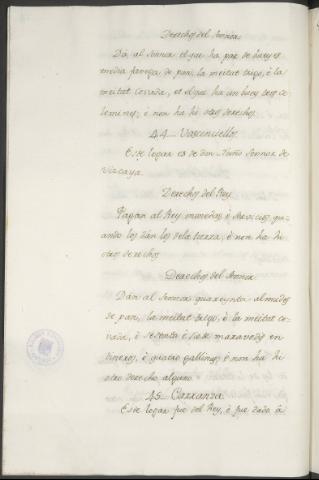 Derechos del Sennor
Dá al Sennor el que ha par de bueyes
media fanega de pan, la meitat trigo, é la
meitat cevada, et el que ha un buey seis ce
lemines, é non ha hi otros derechos
44 Vasconciellos
Este logar es de don Nunno Sennor de
Vizcaya.
Derechos del Rey
Pagan al Rey monedas é servicios quan
ando los dan los de la tierra, é non ha hi
otros derechos
Derechos del Sennor
Dan al Sennor quareynta almudes
de pan, la meitat trigo, é la meitat ce
vada, é setenta é siete maravedis en
dineros, é quatro gallinas é non ha hi
otro derecho alguno
45 Carranza
Este logar fue del Rey, é fue dado á